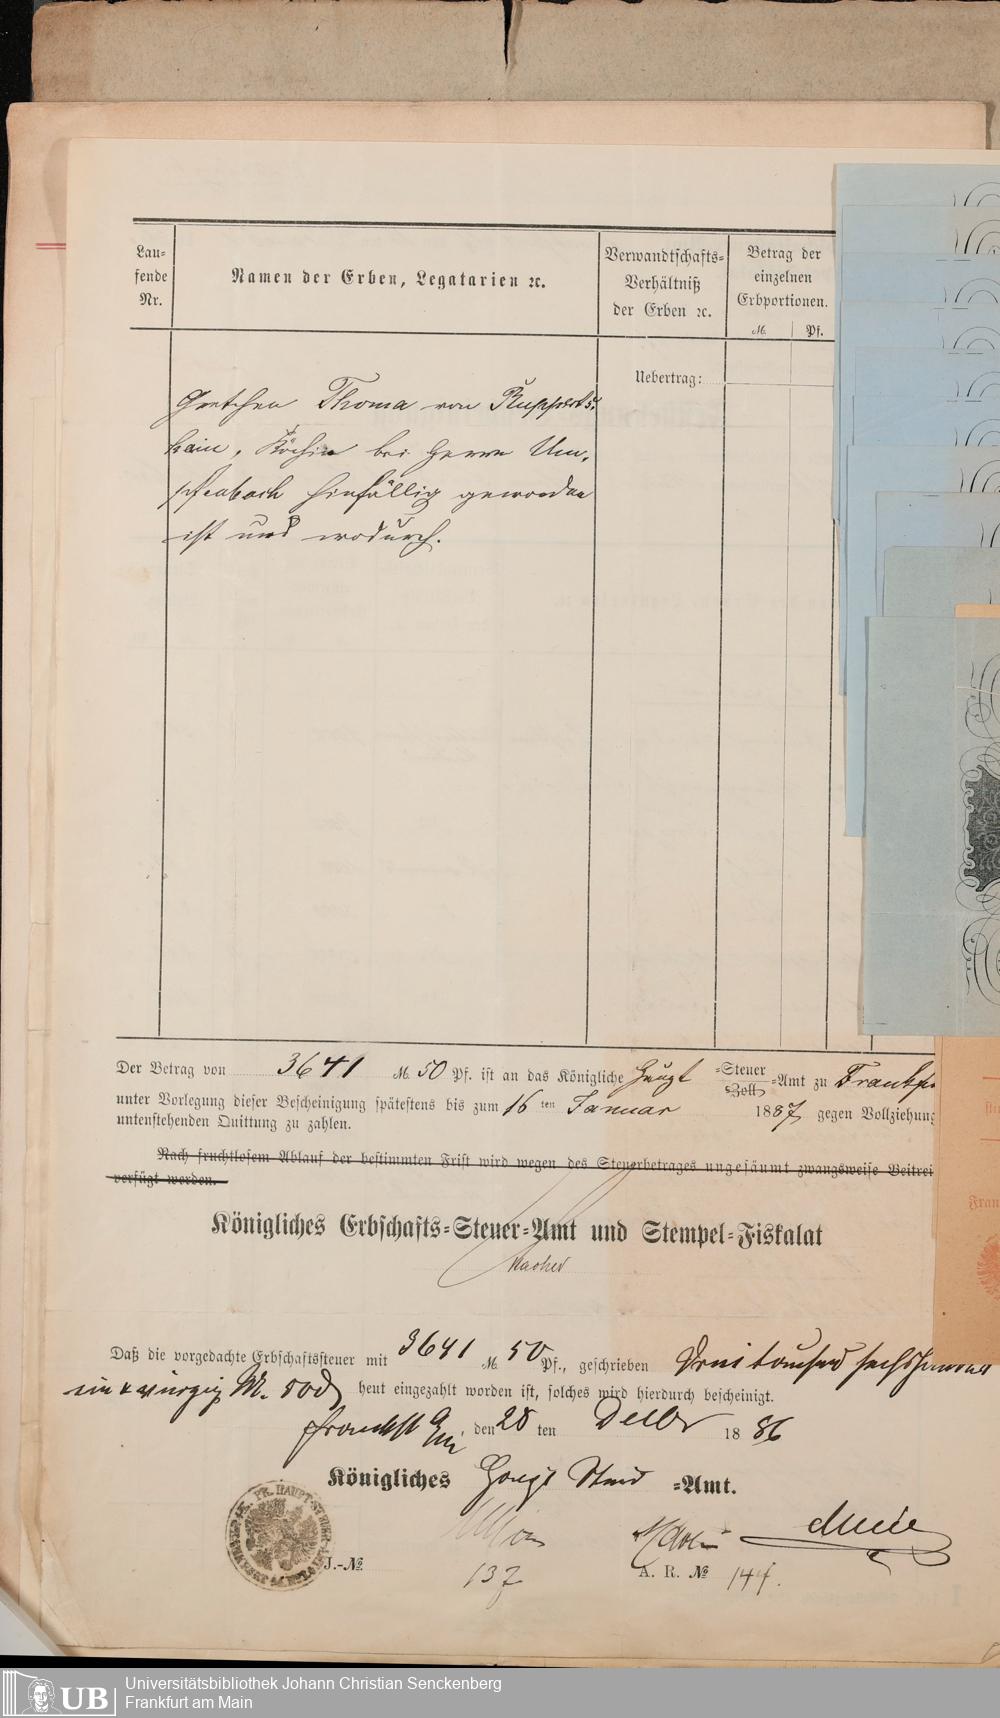 Lau-
fende
Nr.
Namen der Erben, Legatarien ꝛc.
Verwandtschafts-
Verhältniß
der Erben ꝛc.
Betrag der
einzelnen
Erbportionen.
M. Pf.
Uebertrag:
Gretchen Thoma von Rupperts-
hain, Köchin bei Herrn Um-
pfenbach hinfällig geworden
ist und wodurch.
Der Betrag von 3641 M. 50 Pf. ist an das Königliche Haupt =Steuer Zoll =Amt zu
unter Vorlegung dieser Bescheinigung spätestens bis zum 16 ten Januar 1887 gegen Vollziehung
untenstehenden Quittung zu zahlen.
Nach fruchtlosem Ablauf der bestimmten Frist wird wegen des Steuerbetrages ungesäumt zwangsweise Beitrei
verfügt werden.
Königliches Erbschafts-Steuer-Amt und Stempel-Fiskalat
Daß die vorgedachte Erbschaftssteuer mit 3641 M. 50 Pf., geschrieben Dreitausend sechshundert
ein & vierzig M. 50 heut eingezahlt worden ist, solches wird hierdurch bescheinigt.
den 28 ten Decbr 1886
Königliches Haupt Steuer =Amt.
J.-№ 137
A. R. № 144.
Fran
Universitätsbibliothek Johann Christian Senckenberg
Frankfurt am Main
UB